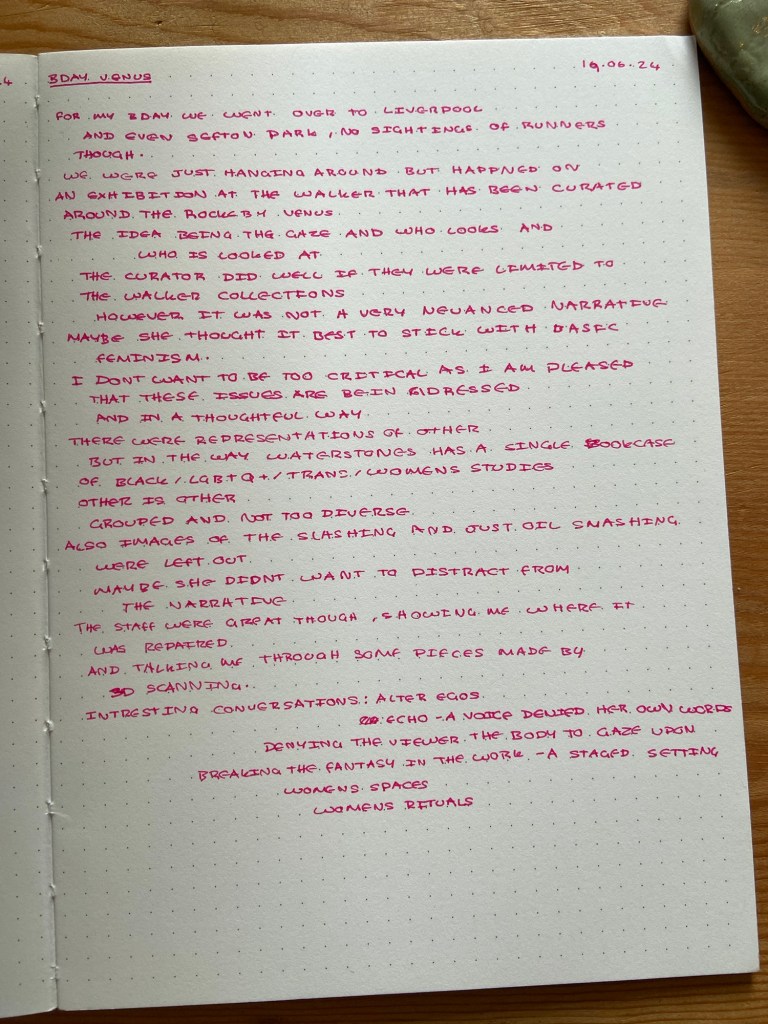 4
BDAY VENUS
19.06.24
FOR MY BDAY WE WENT OVER TO LIVERPOOL
AND EVEN SEFTON PARK, NO SIGHTINGS OF RUNNERS
THOUGH.
WE WERE JUST HANGING AROUND BUT HAPPNED ON
AN EXHIBITION AT THE WALKER THAT HAS BEEN CURATED
AROUND THE ROCKEBY VENUS.
THE IDEA BEING THE GAZE AND WHO LOOKS AND
WHO IS LOOKED AT.
THE CURATOR DID WELL IF THEY WERE LIMITED TO
THE WALKER COLLECTIONS
HOWEVER IT WAS NOT A VERY NEUANCED NARRATIVE
MAYBE SHE THOUGHT IT BEST TO STICK WITH BASIC
FEMINISM.
I DONT WANT TO BE TOO CRITICAL AS I AM PLEASED
THAT THESE ISSUES ARE BEIN ADRESSED
AND IN A THOUGHTFUL WAY
THERE WERE REPRESENTATIONS OF OTHER
BUT IN THE WAY WATERSTONES HAS A SINGLE BOOKCASE
OF BLACK/LGBTQ+/TRANS/WOMENS STUDIES
OTHER IS OTHER
GROUPED AND NOT TOO DIVERSE.
ALSO IMAGES OF THE SLASHING AND JUST OIL SMASHING
WERE LEFT OUT.
MAYBE SHE DIDNT WANT TO DISTRACT FROM
THE NARRATIVE
THE STAFF WERE GREAT THOUGH, SHOWING ME WHERE IT
WAS REPAIRED.
AND TALKING ME THROUGH SOME PIECES MADE BY
3D SCANNING.
INTRESTING CONVERSATIONS: ALTER EGOS.
ECHO - A VOICE DENIED HER OWN WORDS
DENYING THE VIEWER THE BODY TO GAZE UPON
BREAKING THE FANTASY IN THE WORK - A STAGED SETTING
WOMENS SPACES
WOMENS RITUALS